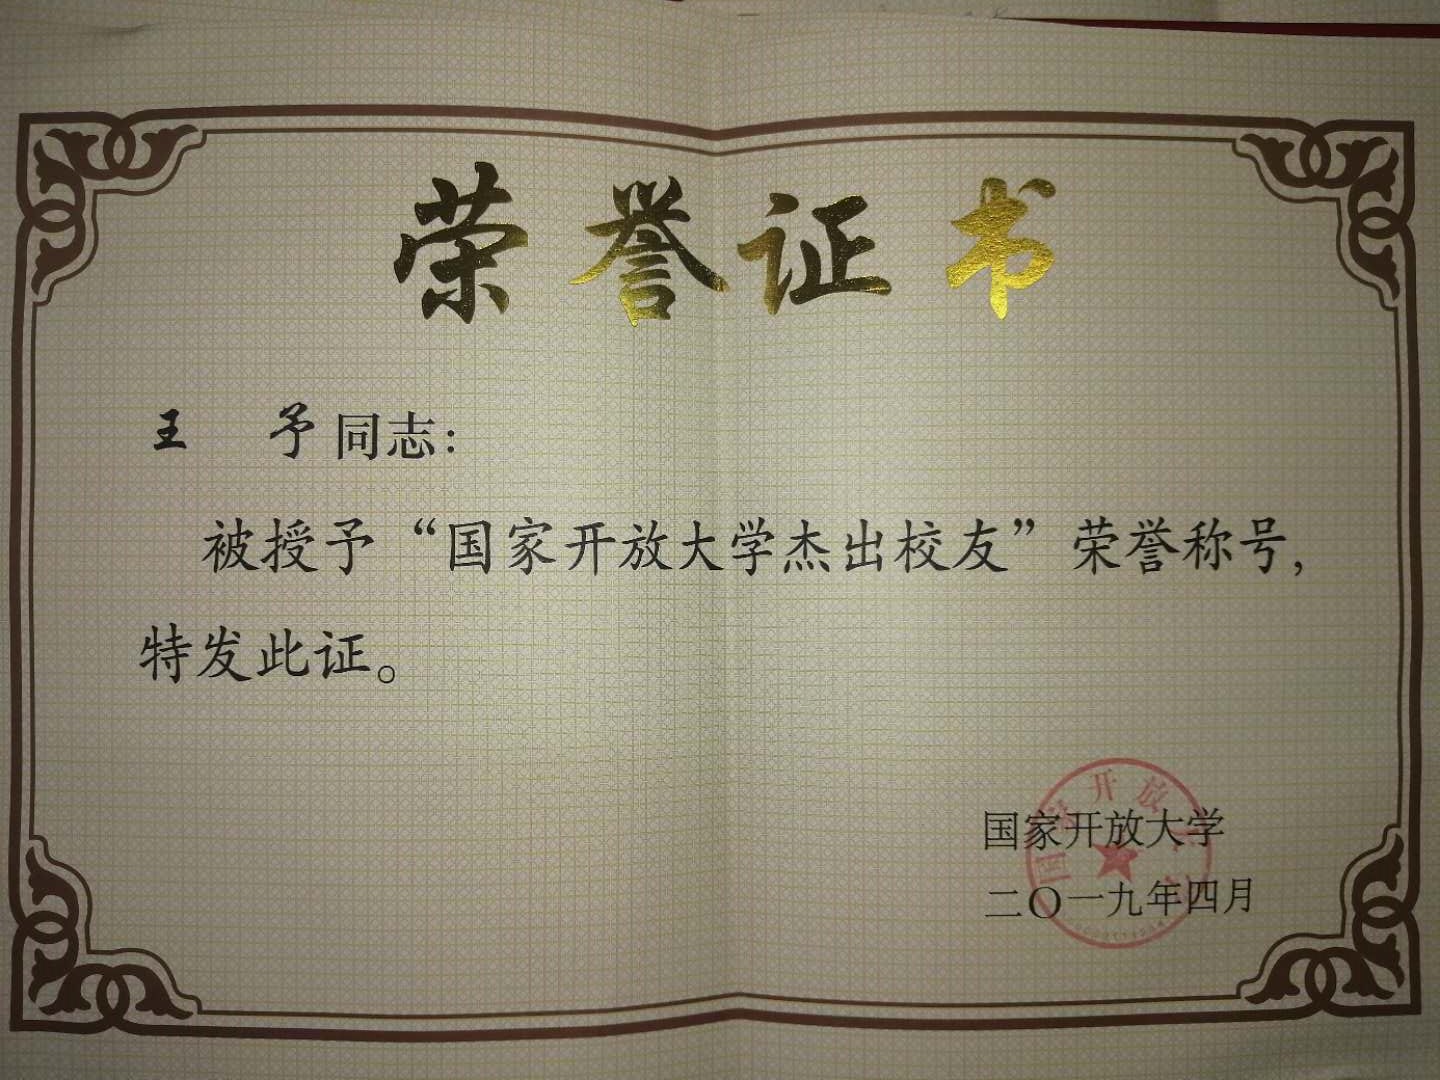 荣誉证书
王 予同志：
被授予“国家开放大学杰出校友”荣誉称号，
特发此证。
国家开放大学
二〇一九年四月
国家开放